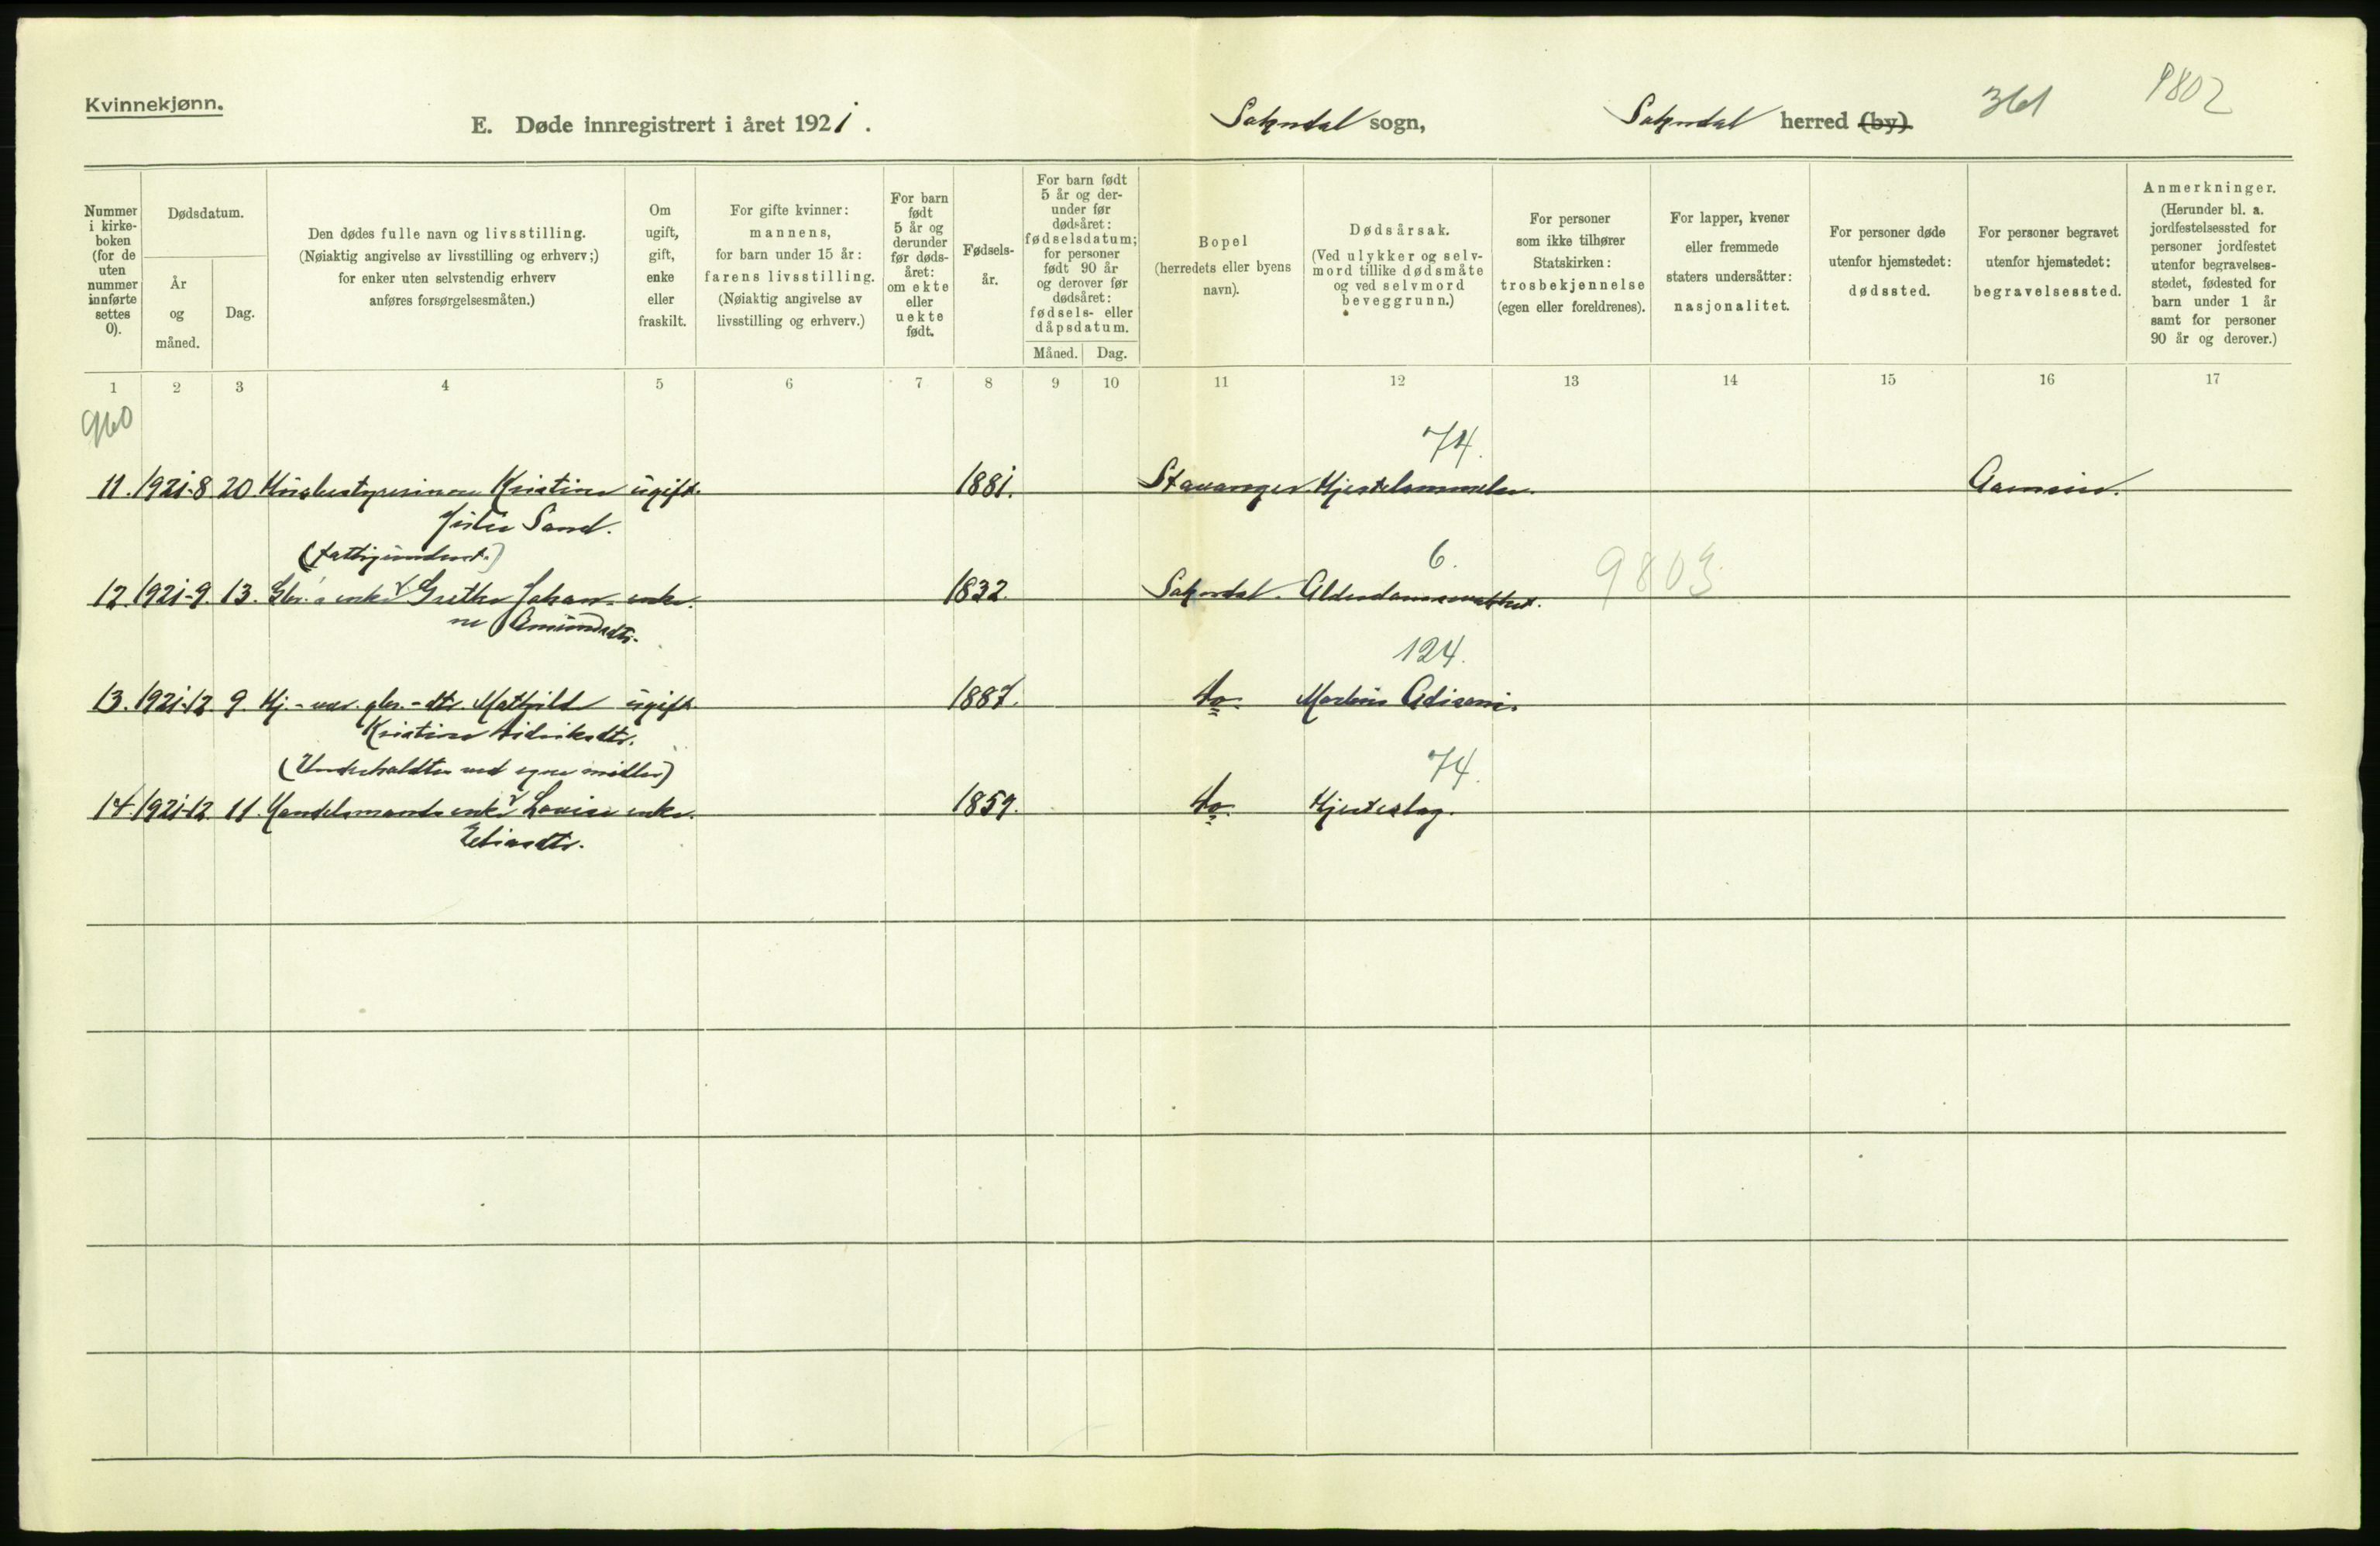 Kvinnekjønn.
E. Døde innregistrert i året 1921.
Sokndal sogn,
Sokndal herred (by)
361
9802
Nummer i kirke-boken (for de uten nummer innførte settes 0).
Dødsdatum.
År og måned.
Dag.
Den dødes fulle navn og livsstilling.
(Nøiaktig angivelse av livsstilling og erhverv;)
for enker uten selvstendig erhverv
anføres forsørgelsesmåten.)
Om ugift, gift, enke eller fraskilt.
For gifte kvinner:
mannens,
for barn under 15 år:
farens livsstilling.
(Nøiaktig angivelse av
livsstilling og erhverv.)
For barn født 5 år og derunder før døds-året: om ekte eller uekte født.
Fødsels-år.
For barn født 5 år og der-under før dødsåret: fødselsdatum; for personer født 90 år og derover før dødsåret: fødsels- eller dåpsdatum.
Måned.
Dag.
Bopel
(herredets eller byens
navn).
Dødsårsak.
(Ved ulykker og selv-
mord tillike dødsmåte
og ved selvmord
beveggrunn.)
For personer
som ikke tilhører
Statskirken:
trosbekjennelse
(egen eller foreldrenes).
For lapper, kvener
eller fremmede
staters undersåtter:
nasjonalitet.
For personer døde
utenfor hjemstedet:
dødssted.
For personer begravet
utenfor hjemstedet:
begravelsessted.
Anmerkninger.
(Herunder bl. a.
jordfestelsessted for
personer jordfestet
utenfor begravelses-
stedet, fødested for
barn under 1 år
samt for personer
90 år og derover.)
1 2 3 4 5 6 7 8 9 10 11 12 13 14 15 16 17
960
74.
11. 1921-8 20 Husbestyrerinne Kristine ugift. 1881. Stavanger Hjertelammelse.
Sand.
(fattigunderst.)
6.
9803
12. 1921-9. 13. Gbr.'s enke Grethe Johan- enke. 1832. Sokndal. Alderdomssvakhet.
ne Amundsdtr.
124.
13. 1921-12 9. Hj.-vær. gbr.-dtr. Mathilde ugift 1887. do. Morbus Adisoni.
Kristine Didriksdtr.
(Underholdtes ved egne midler)
74.
14. 1921-12 11. Handelsmands enke Lovise enke. 1859. do. Hjerteslag.
Eliasdtr.